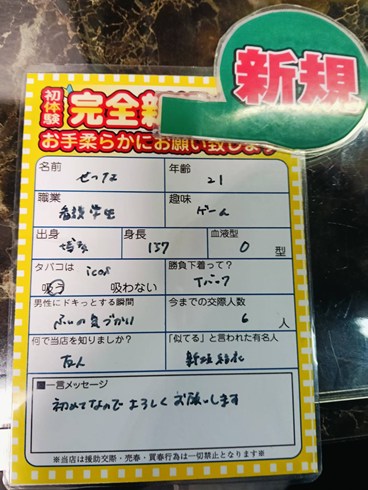 新規
初体験 完全新
お手柔らかにお願い致します
名前 せつな
年齢 21
職業 看護学生
趣味 ゲーム
出身 埼玉
身長 157
血液型 O 型
タバコは icos
吸う 吸わない
勝負下着って?
Tバック
男性にドキっとする瞬間
ふいの気づかい
今までの交際人数
6 人
何で当店を知りましたか?
友人
「似てる」と言われた有名人
新垣結衣
■一言メッセージ
初めてなので よろしく お願いします
※当店は援助交際・売春・買春行為は一切禁止となります※